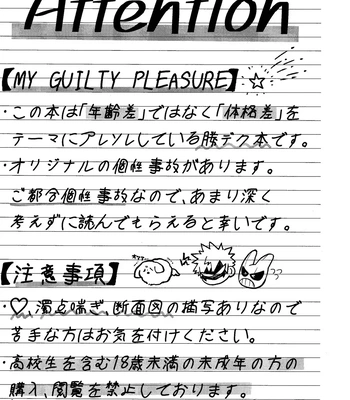 Attention
【MY GUILTY PLEASURE】
・この本は「年齢差」ではなく「体格差」を
テーマにアレソレしている勝デク本です。
・オリジナルの個性事故があります。
ご都合個性事故なので、あまり深く
考えずに読んでもらえると幸いです。
【注意事項】
・♡,濁点喘ぎ,断面図の描写ありなので
苦手な方はお気を付けください。
・高校生を含む18歳未満の未成年の方の
購入、閲覧を禁止しております。